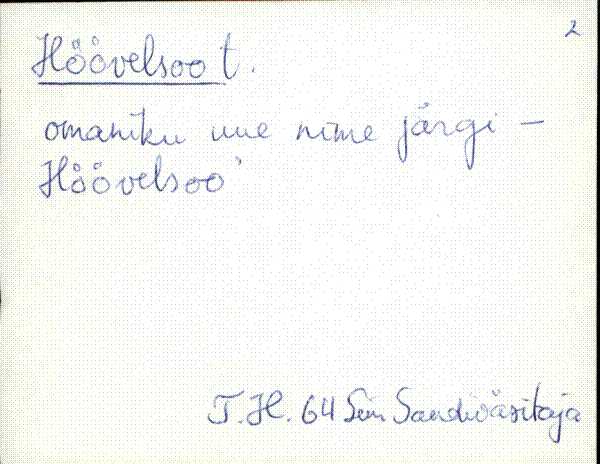 2
Höövelsoo t.
omaniku uue nime järgi –
Höövelsoo'
T.H. 64 Sandiväsitaja